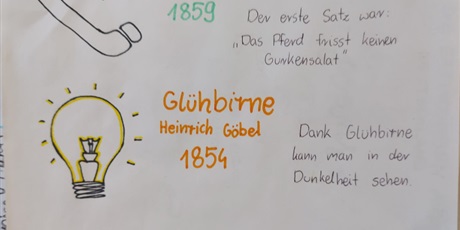 1859
Der erste Satz war:
„Das Pferd frisst keinen
Gurkensalat"
Glühbirne
Heinrich Göbel
1854
Dank Gluhbirne
kann man in der
Dunkelheit sehen.